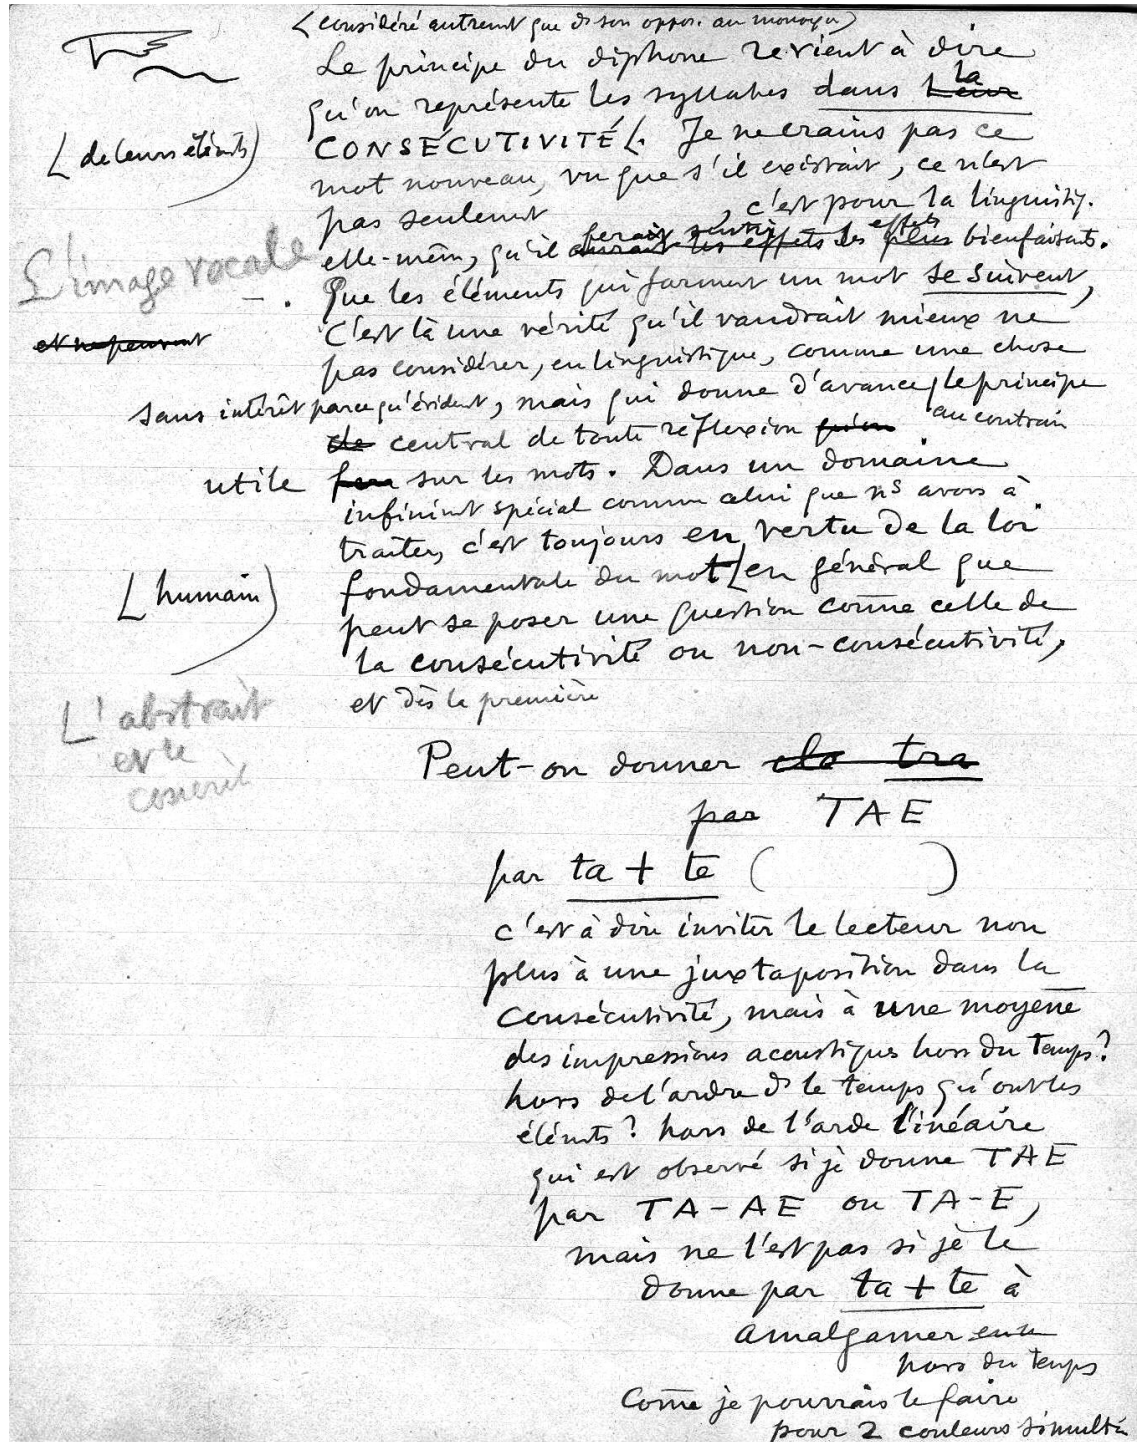 (considéré autrement que ds son oppos. au monoph)
Le principe du diphone revient à dire
qu'on représente les syllabes dans leur la
CONSÉCUTIVITÉ[. Je ne crains pas ce
[de leurs élémts)
mot nouveau, vu que s'il existait, ce n'est
pas seulement , c'est pour la linguistiq.
L'image vocale
elle-mêm, qu'il aurait ferait sentir les effets les effets plus bienfaisants.
– . Que les éléments qui forment un mot se suivent,
et ne peuvent
c'est là une vérité qu'il vaudrait mieux ne
pas considérer, en linguistique, comme une chose
sans intérêt parce qu'évident, mais qui donne d'avance [le principe
au contrair
de central de toute réflexion qu'on
utile sur les mots. Dans un domaine
infinimt spécial comme celui que ns avons à
traiter, c'est toujours en vertu de la loi
fondamentale du mot [en général que
[humain)
peut se poser une question come celle de
la consécutivité ou non-consécutivité,
et dès la première
L'abstrait
et le
concrèt
Peut-on donner cla tra
par TAE
par ta + te ( )
c'est à dire inviter le lecteur non
plus à une juxtaposition dans la
consécutivité, mais à une moyene
des impressions acoustiques hors du temps?
hors de l'ordre ds le temps qu'ont les
élémts? hors de l'orde linéaire
qui est observé si je donne TAE
par TA-AE ou TA-E,
mais ne l'est pas si je le
donne par ta + te à
amalgamer
hors du temps
Come je pourrais le faire
pour 2 couleurs simultа